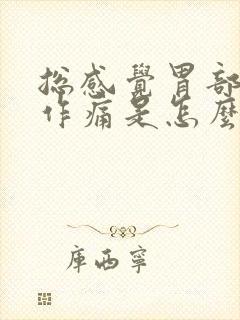 総感覺胃部
作痛是怎麼
庫西寧